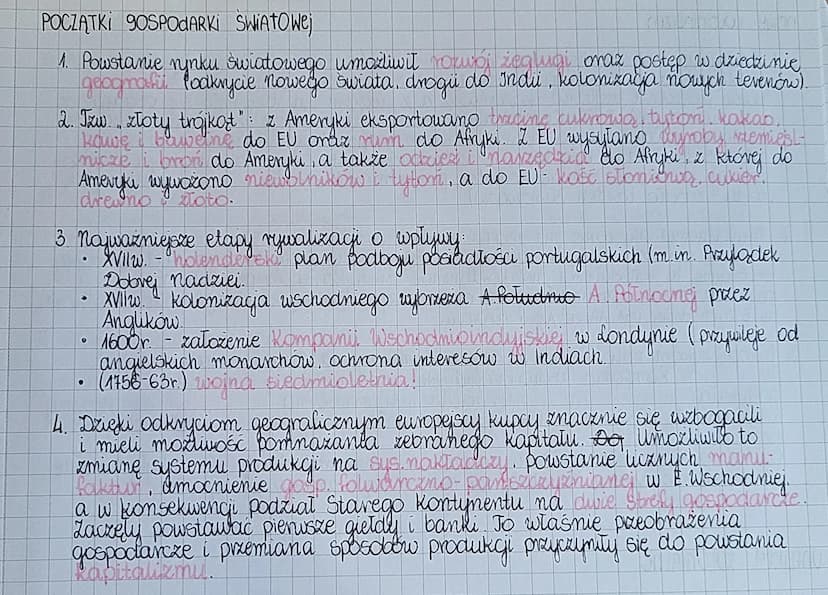 POCZĄTKI GOSPODARKI ŚWIATOWEJ
1. Powstanie rynku światowego umożliwił rozwój żeglugi oraz postęp w dziedzinie
geografii (odkrycie nowego świata, drogi do Indii, kolonizacja nowych terenów).
2. Tzw. "złoty trójkąt": z Ameryki eksportowano trzcinę cukrową, tytoń, kakao,
kawę i bawełnę do EU oraz rum do Afryki. Z EU wysyłano wyroby rzemieśl-
nicze i broń do Ameryki, a także odzież i narzędzia do Afryki, z której do
Ameryki wywożono niewolników i tytoń, a do EU - kość słoniową, cukier,
drewno i złoto.
3. Najważniejsze etapy rywalizacji o wpływy:
• XVIIw. - holenderski plan podboju posiadłości portugalskich (m.in. Przylądek
Dobrej Nadziei.
• XVIIw. - kolonizacja wschodniego wybrzeża A.Południo A. Północnej przez
Anglików.
• 1600r. - założenie Kompanii Wschodnioindyjskiej w Londynie (przywileje od
angielskich monarchów, ochrona interesów w Indiach.
• (1756-63r.) wojna siedmioletnia!
4. Dzięki odkryciom geograficznym europejscy kupcy znacznie się wzbogacili
i mieli możliwość pomnażania zebranego kapitału. Umożliwiło to
zmianę systemu produkcji na sys. nakładczy, powstanie licznych manu-
faktur, umocnienie gosp. folwarczno-pańszczyźnianej w E.Wschodniej,
a w konsekwencji podział Starego Kontynentu na dwie strefy gospodarcze.
Zaczęły powstawać pierwsze giełdy i banki. To właśnie przeobrażenia
gospodarcze i przemiana sposobów produkcji przyczyniły się do powstania
kapitalizmu.